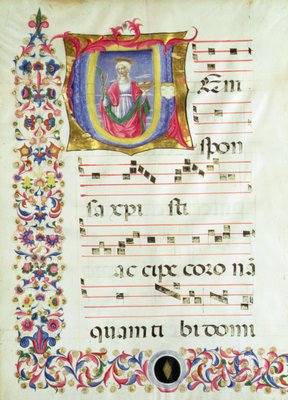 VEni
spon
sa xpi sti
ac cipe coro nā
quam ti bi domi